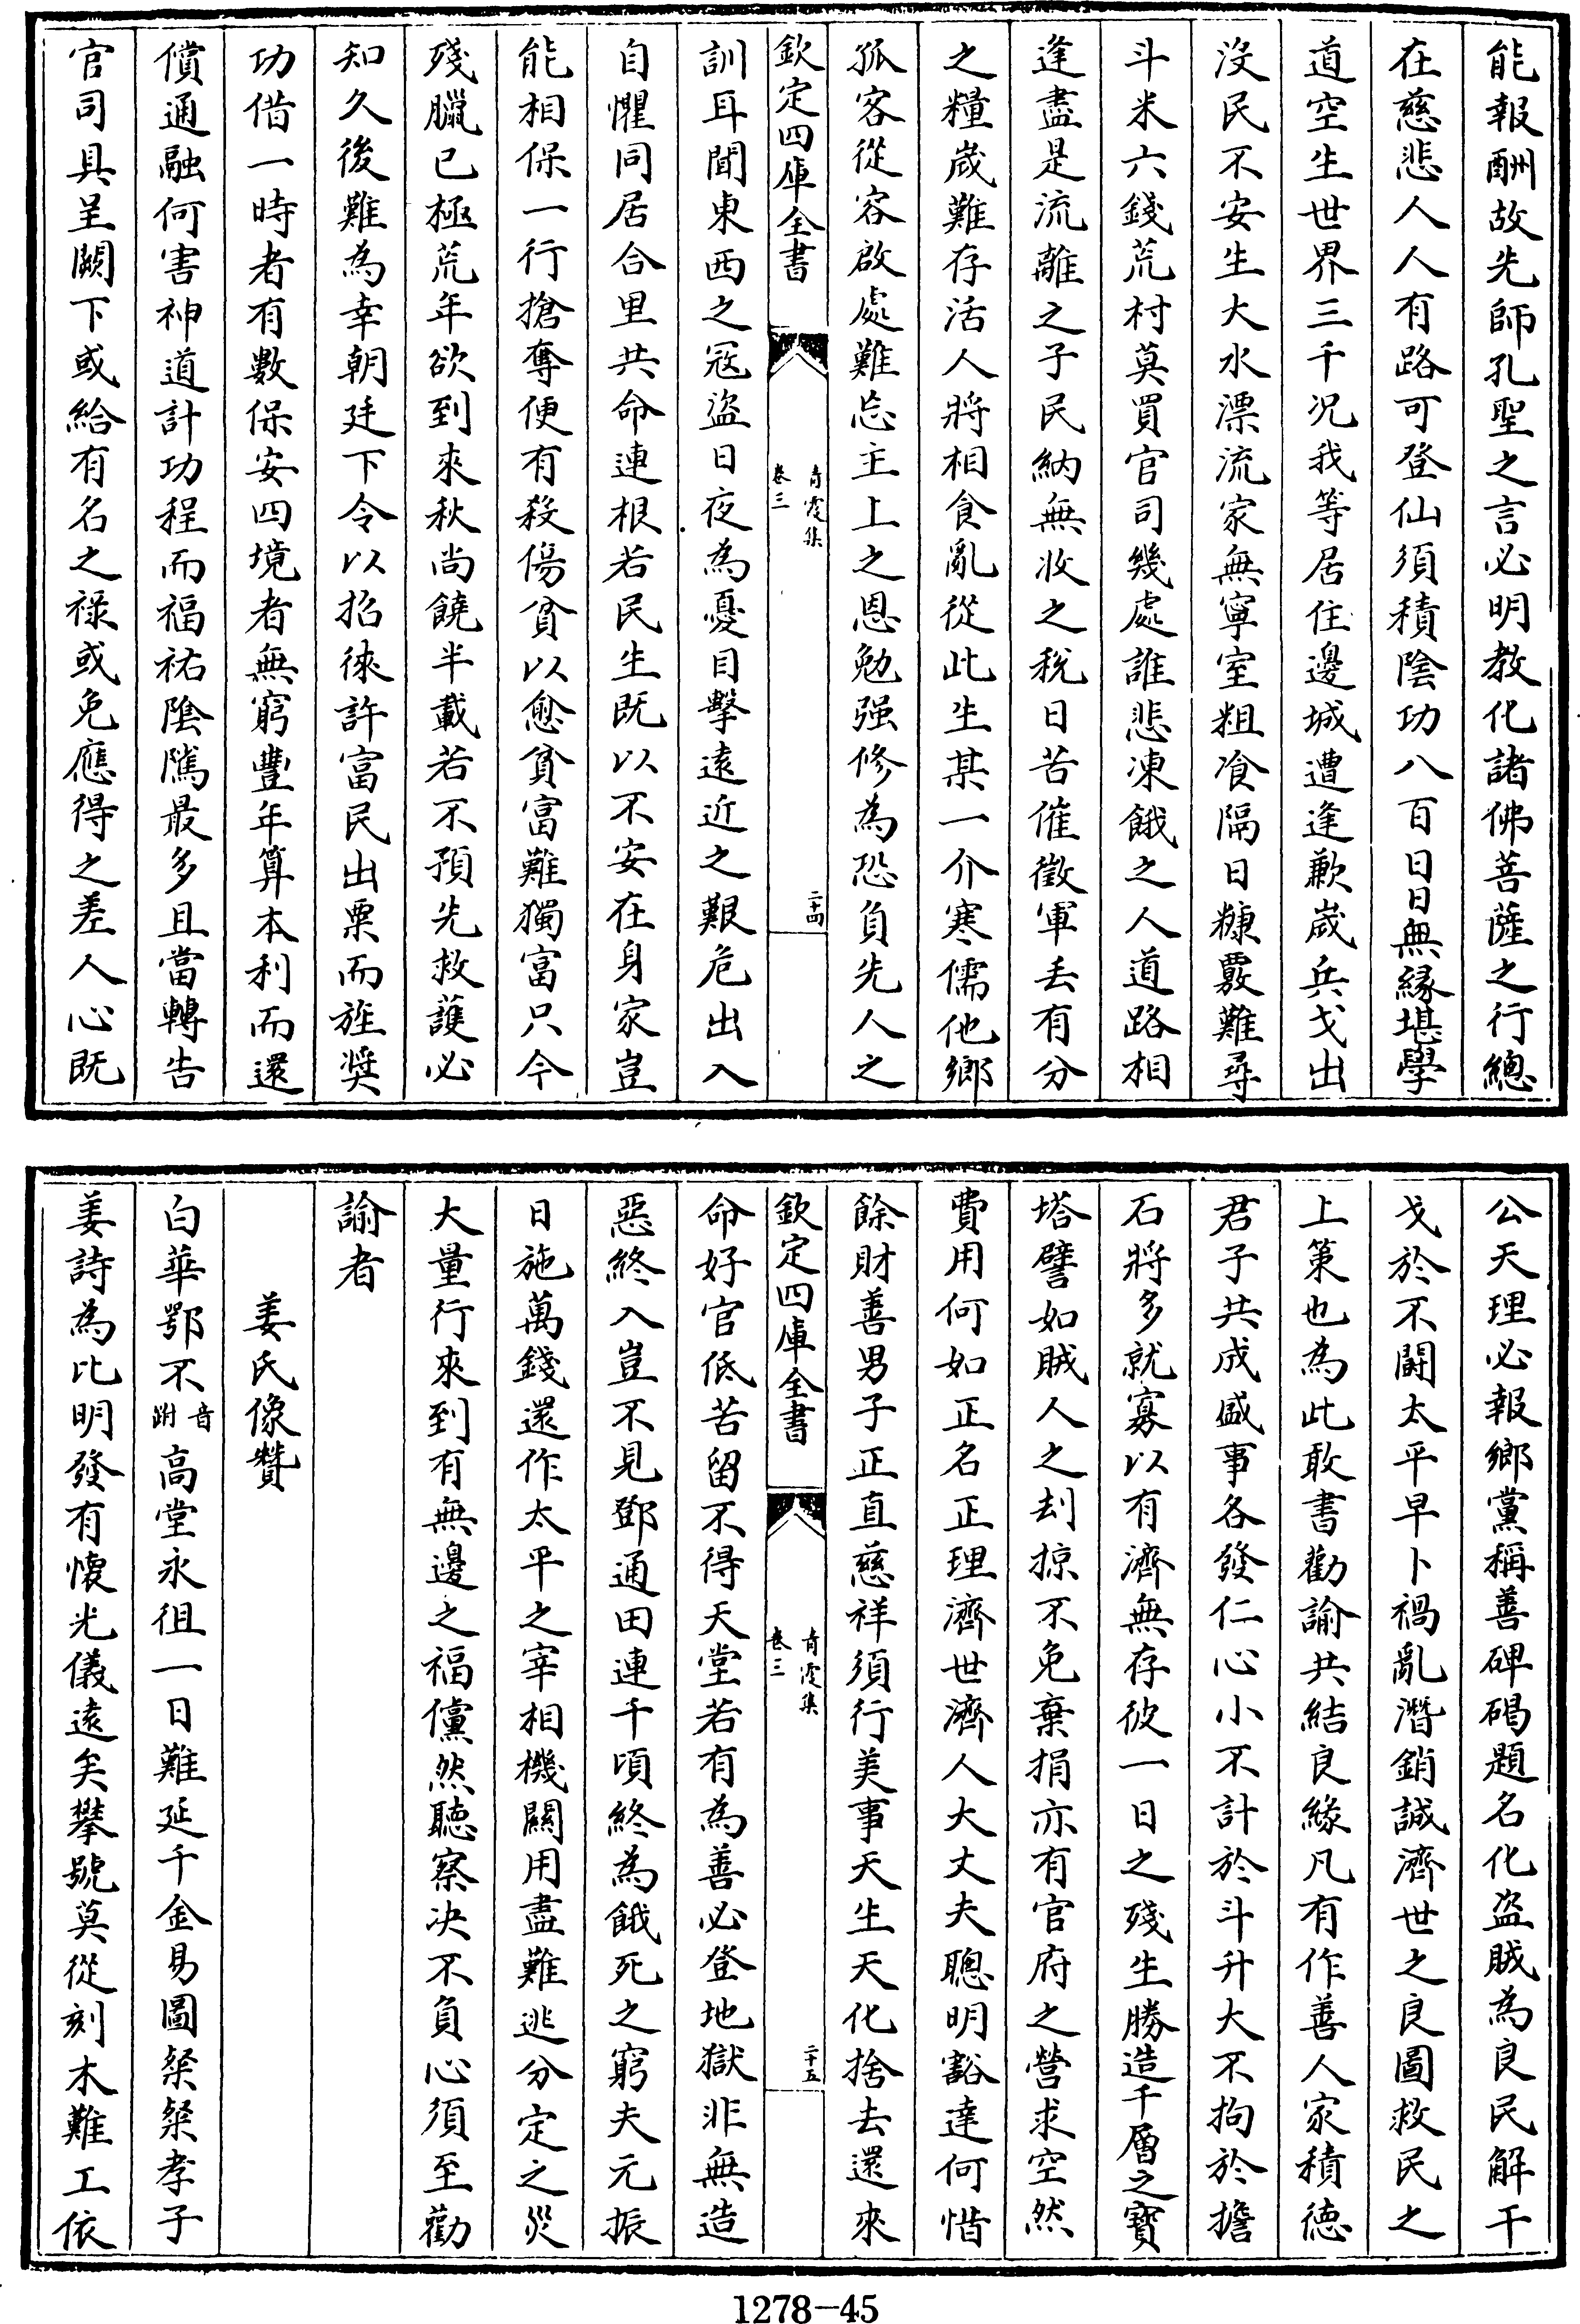 能報酬故先師孔聖之言必明教化諸佛菩薩之行總
在慈悲人人有路可登仙須積陰功八百日日無緣堪學
道空生世界三千况我等居住邊城遭逢歉歲兵戈出
没民不安生大水漂流家無寧室粗飡隔日糠覈難尋
斗米六錢荒村莫買官司幾處誰悲凍餓之人道路相
逢盡是流離之子民納無收之稅日苦催徵軍丢有分
之糧歲難存活人將相食亂從此生某一介寒儒他鄉
孤客從容啟處難忘主上之恩勉强修為恐負先人之
欽定四庫全書
青霞集
卷三
二十四
訓耳聞東西之冦盗日夜為憂目擊遠近之艱危出入
自懼同居合里共命連根若民生既以不安在身家豈
能相保一行搶奪便有殺傷貧以愈貧富難獨富只今
殘臘已極荒年欲到來秋尚饒半載若不預先救護必
知久後難為幸朝廷下令以招徠許富民出粟而旌奬
功借一時者有數保安四境者無窮豐年算本利而還
償通融何害神道計功程而福祐陰隲最多且當轉告
官司具呈闕下或給有名之禄或免應得之差人心既
公天理必報鄉黨稱善碑碣題名化盗賊為良民解干
戈於不鬭太平早卜禍亂潛銷誠濟世之良圖救民之
上策也為此敢書勸諭共結良緣凡有作善人家積德
君子共成盛事各發仁心小不計於斗升大不拘於擔
石將多就寡以有濟無存彼一日之殘生勝造千層之寶
塔譬如賊人之刦掠不免棄捐亦有官府之營求空然
費用何如正名正理濟世濟人大丈夫聰明豁達何惜
餘財善男子正直慈祥須行美事天生天化捨去還來
欽定四庫全書
青霞集
卷三
二十五
命好官低苦留不得天堂若有為善必登地獄非無造
惡終入豈不見鄧通田連千頃終為餓死之窮夫元振
日施萬錢還作太平之宰相機關用盡難逃分定之災
大量行來到有無邊之福儻然聽察决不負心須至勸
諭者
姜氏像贊
白華鄂不音跗高堂永徂一日難延千金易圖粲粲孝子
姜詩為比明發有懷光儀遠矣攀號莫從刻木難工依
1278-45